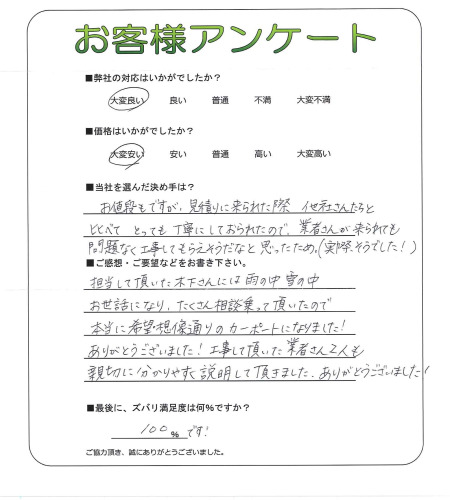 お客様アンケート
■弊社の対応はいかがでしたか？
大変良い 良い 普通 不満 大変不満
■価格はいかがでしたか？
大変安い 安い 普通 高い 大変高い
■当社を選んだ決め手は？
お値段もですが、見積りに来られた際 他社さんたちと
比べて とっても丁寧にしておられたので、業者さんが来られても
問題なく工事してもらえそうだなと思ったため。(実際、そうでした！)
■ご感想・ご要望などをお書き下さい。
担当して頂いた木下さんには 雨の中 雪の中
お世話になり、たくさん相談乗って頂いたので
本当に希望想像通りの カーポートになりました！
ありがとうございました！ 工事して頂いた 業者さん2人も
親切に分かりやすく説明して頂きました。ありがとうございました！
■最後に、ズバリ満足度は何%ですか？
100 % です！
ご協力頂き、誠にありがとうございました。